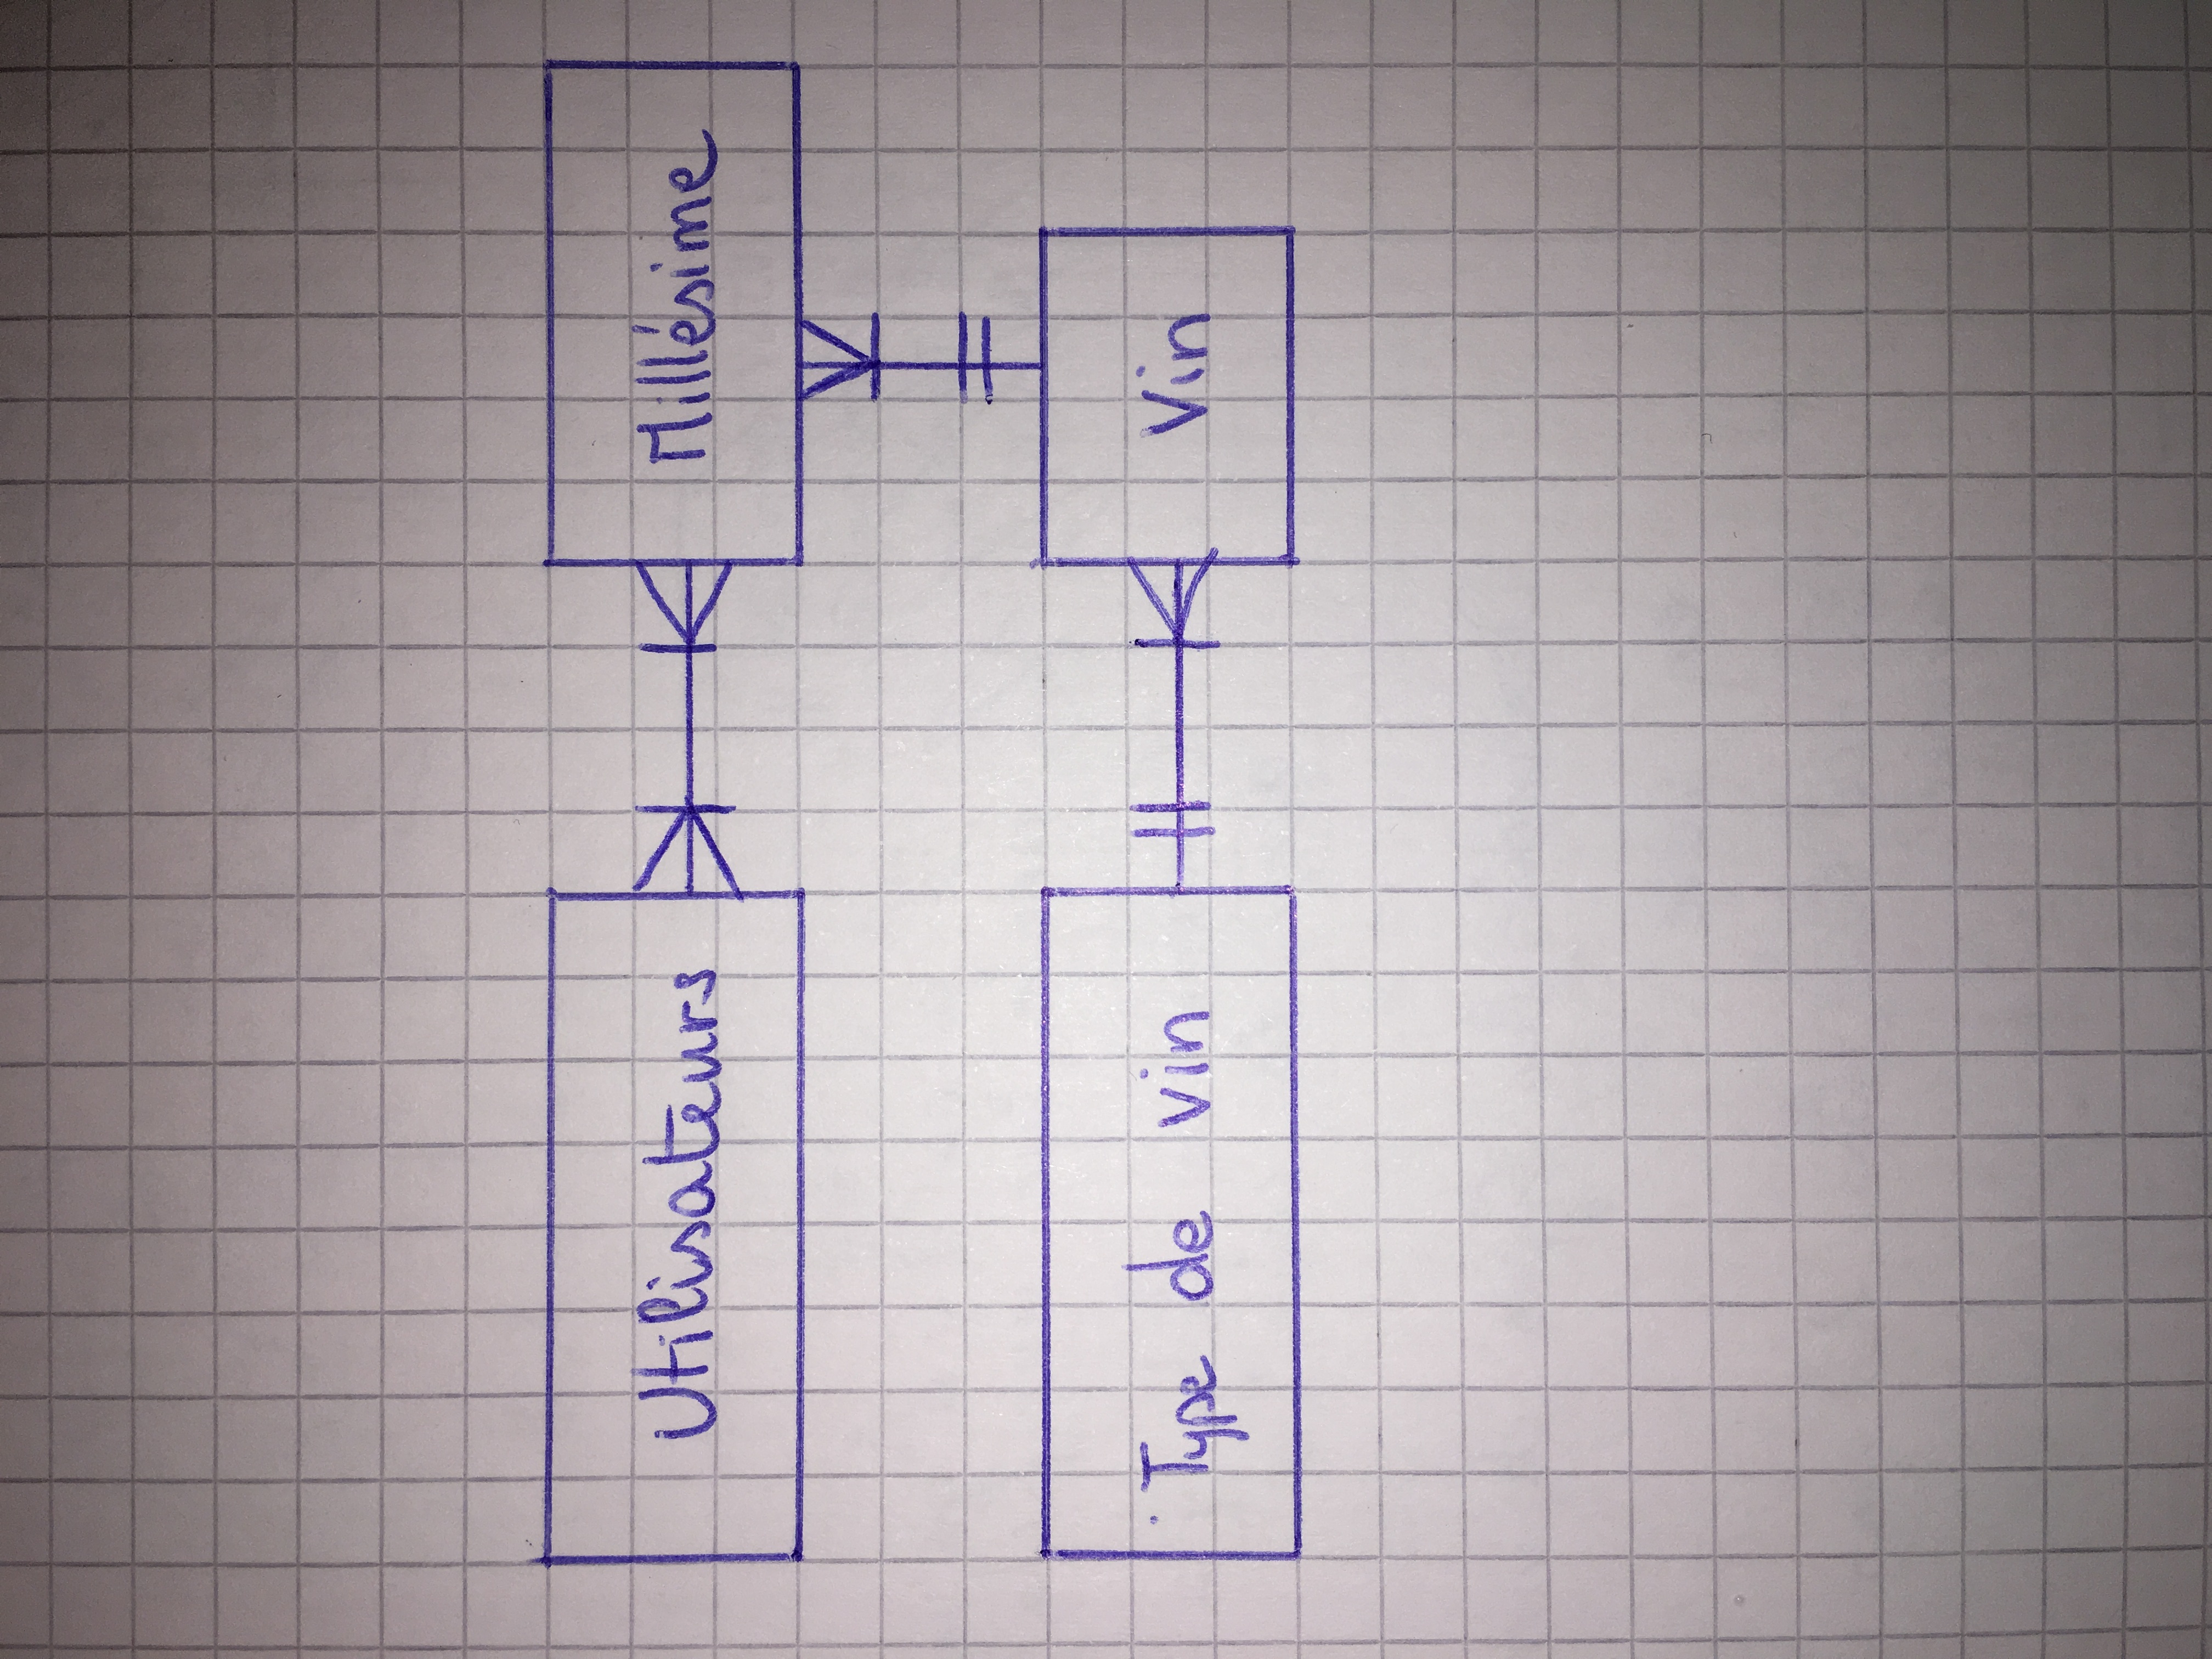 Utilisateurs
Millésime
Type de vin
Vin